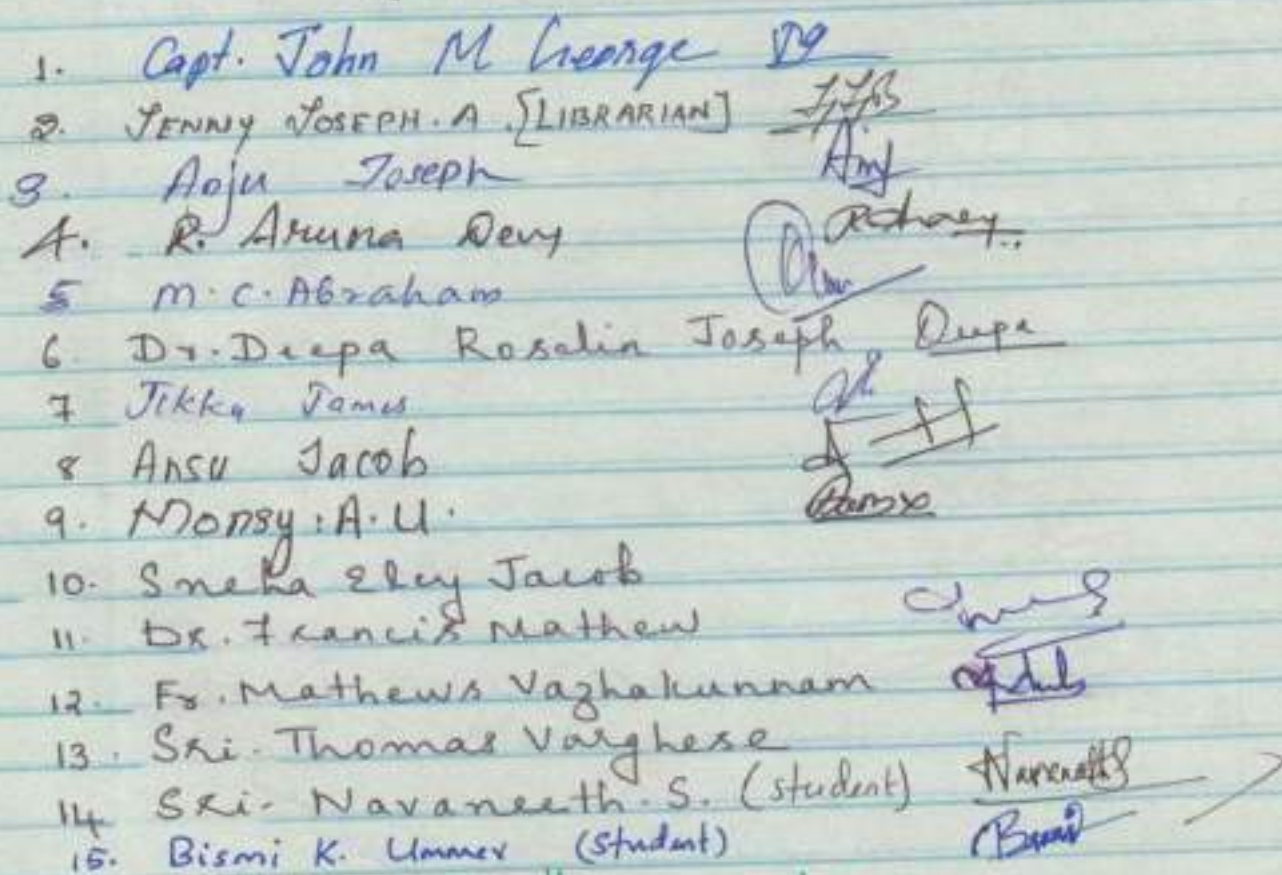 1. Capt. John M George
2. JENNY JOSEPH. A. [LIBRARIAN]
3. Anju Joseph
4. R. Aruna Devy
5 M. C. Abraham
6. Dr. Deepa Rosalin Joseph Deepa
7 Jikku James
8 Ansu Jacob
9. Monsy. A. U.
10. Sneha Elcy Jacob
11. Dr. Francis Mathew
12. Fr. Mathews Vazhakunnam
13. Sri. Thomas Varghese
14 Sri. Navaneeth. S. (student)
15. Bismi K. Ummer (Student)